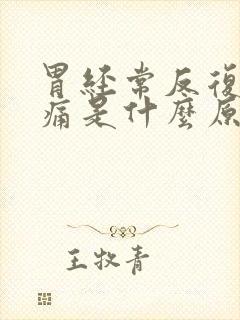 胃經常反復
痛是什麼原
王牧青